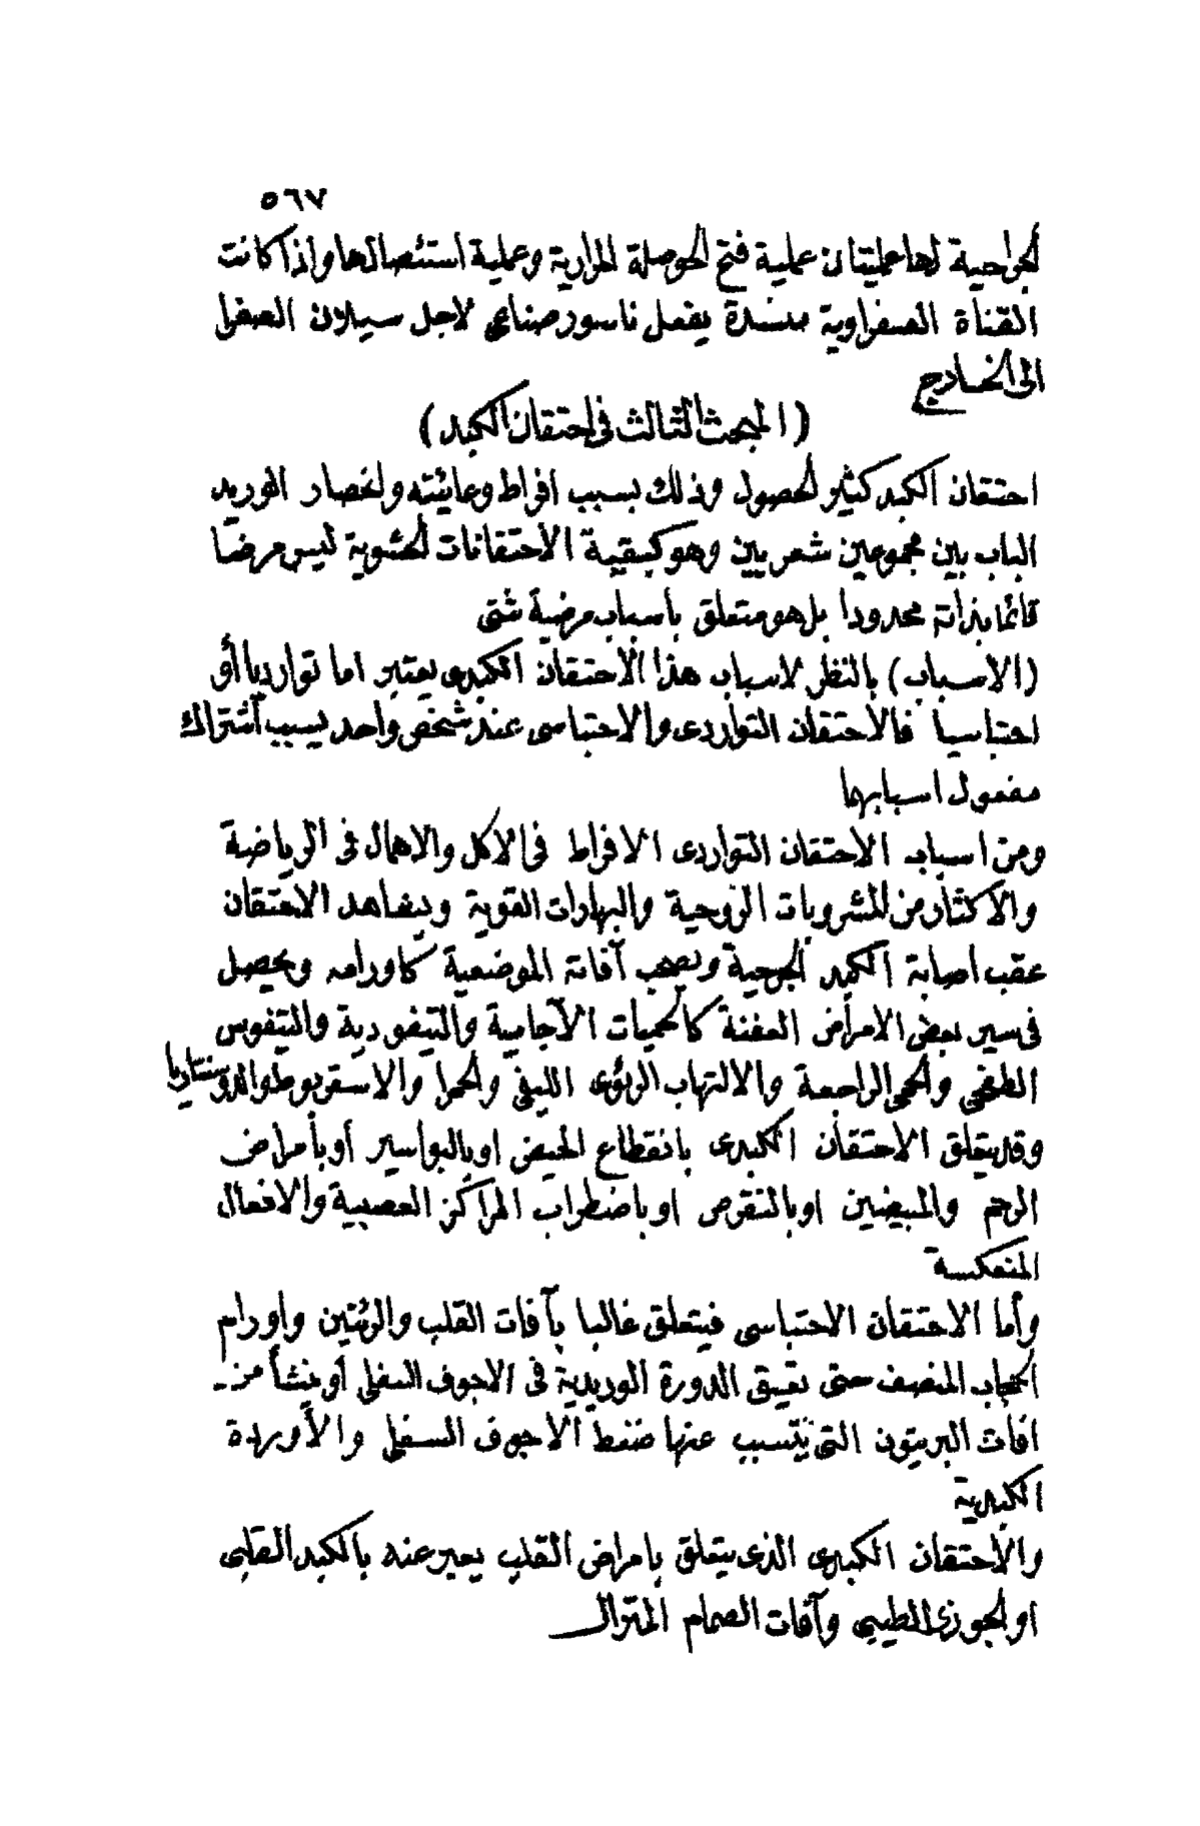 ٥٦٧
الجراحية لها عمليتان عملية فتح الحوصلة المرارية وعملية استئصالها واذا كانت
القناة الصفراوية منسدة يفعل ناسور صناعي لاجل سيلان الصفرا
الى الخارج
(المبحث الثالث في احتقان الكبد)
احتقان الكبد كثير الحصول وذلك بسبب افراط وعائيته وانحصار الوريد
الباب بين مجموعين شعريين وهو كبقية الاحتقانات الحشوية ليس مرضا
قائما بذاته محدودا بل هو متعلق بأسباب مرضية شتى
(الاسباب) بالنظر لاسباب هذا الاحتقان الكبدى يعتبر اما تواردياأو
احتباسيا فالاحتقان التواردى والاحتباسى عند شخص واحد بسبب اشتراك
مفعول اسبابهما
ومن اسباب الاحتقان التواردى الافراط فى الاكل والاهمال فى الرياضة
والاكثار من المشروبات الروحية والبهارات القوية ويشاهد الاحتقان
عقب اصابة الكبد الجرحية ويصحب آفاته الموضعية كاورامه ويحصل
فى سير بعض الامراض العفنة كالحميات الآجامية والتيفودية والتيفوس
الطفحى والحمى الراجعة والالتهاب الرئوى الليفى والحمرا والاسقربوط والدوسنتاريا
وقد يتعلق الاحتقان الكبدى بانقطاع الحيض اوبالبواسير أوبأمراض
الرحم والمبيضين اوبالنقرص اوباضطراب المراكز العصبية والافعال
المنعكسة
وأما الاحتقان الاحتباسى فيتعلق غالبا بآفات القلب والرئتين واورام
الحجاب المنصف متى تعيق الدورة الوريدية فى الاجوف السفلى أوينشأ من
افات البريتون التى يتسبب عنها ضغط الاجوف السفلى والأوردة
الكبدية
والاحتقان الكبدى الذى يتعلق بامراض القلب يعبر عنه بالكبد القلبى
اوالجوزى الطيبى وآفات الصمام المترال